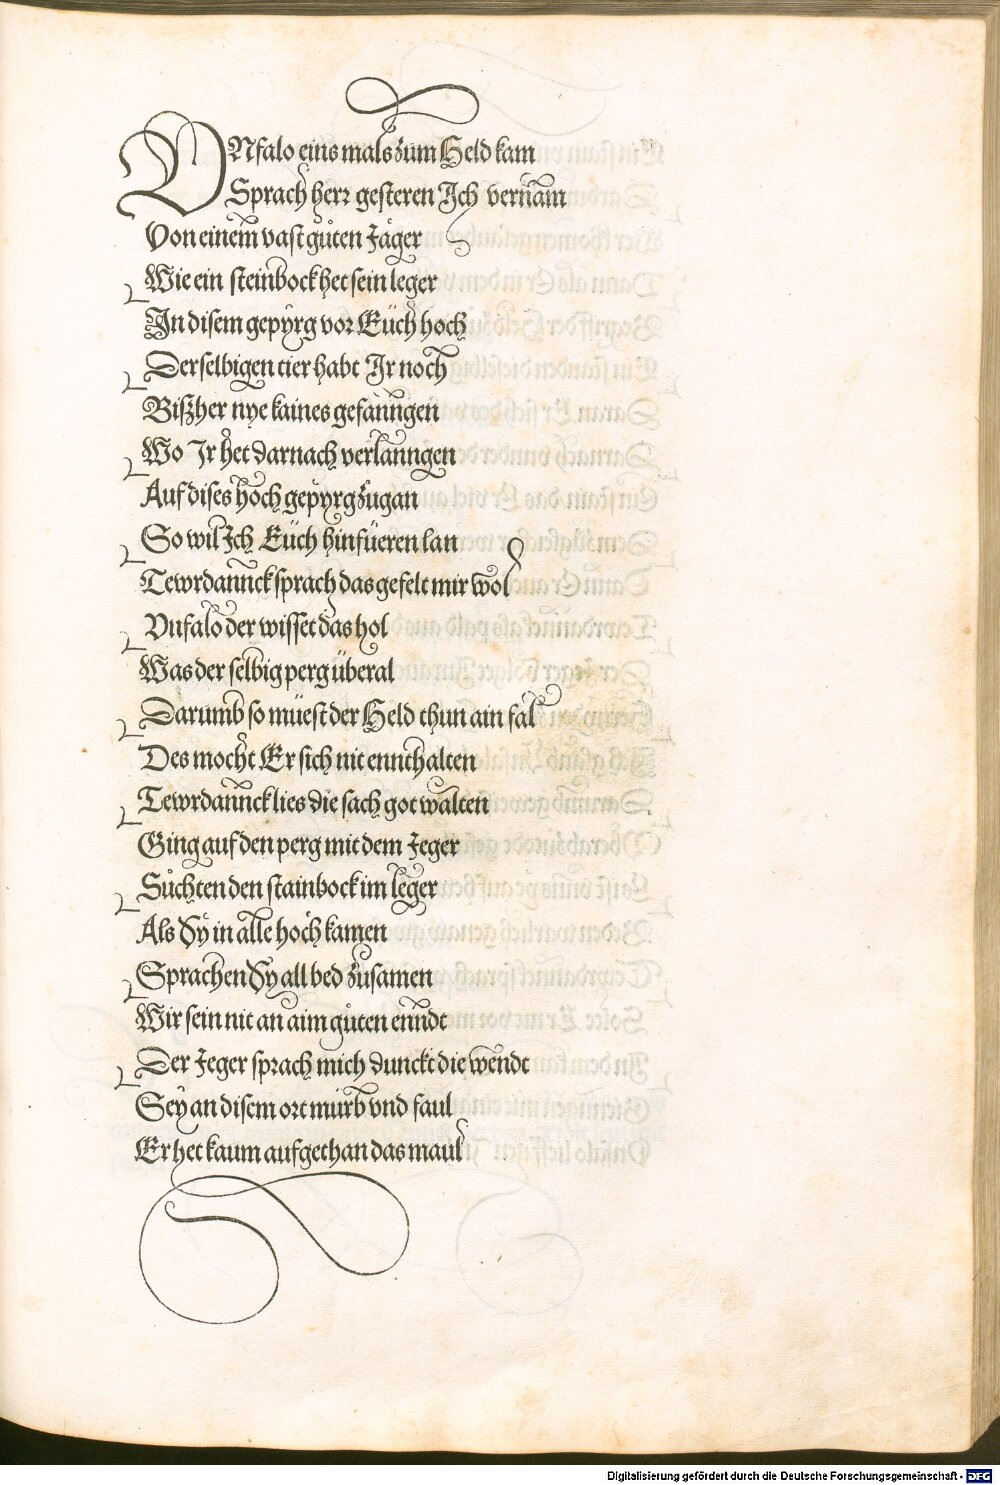 VNfalo eins mals zum Held kam
Sprach herr gesteren Ich vernam
Von einem vast güten Jäger
Wie ein steinbock het sein leger
In disem gepyrg vor Eüch hoch
Derselbigen tier habt Ir noch
Bißher nye kaines gefanngen
Wo Ir het darnach verlanngen
Auf dises hoch gepyrg zugan
So wil Ich Eüch hinfüeren lan
Tewrdannck sprach das gefelt mir wol
Vnfalo der wisset das hol
Was der selbig perg überal
Darumb so müest der Held thun ain fal
Des mocht Er sich nit ennthalten
Tewrdannck lies die sach got walten
Ging auf den perg mit dem Jeger
Sůchten den stainbock im leger
Als Sy in alle hoch kamen
Sprachen Sy all bed zusamen
Wir sein nit an aim gůten enndt
Der Jeger sprach mich dunckt die wendt
Sey an disem ort mürb vnd faul
Er het kaum aufgethan das maul
Digitalisierung gefördert durch die Deutsche Forschungsgemeinschaft - DFG